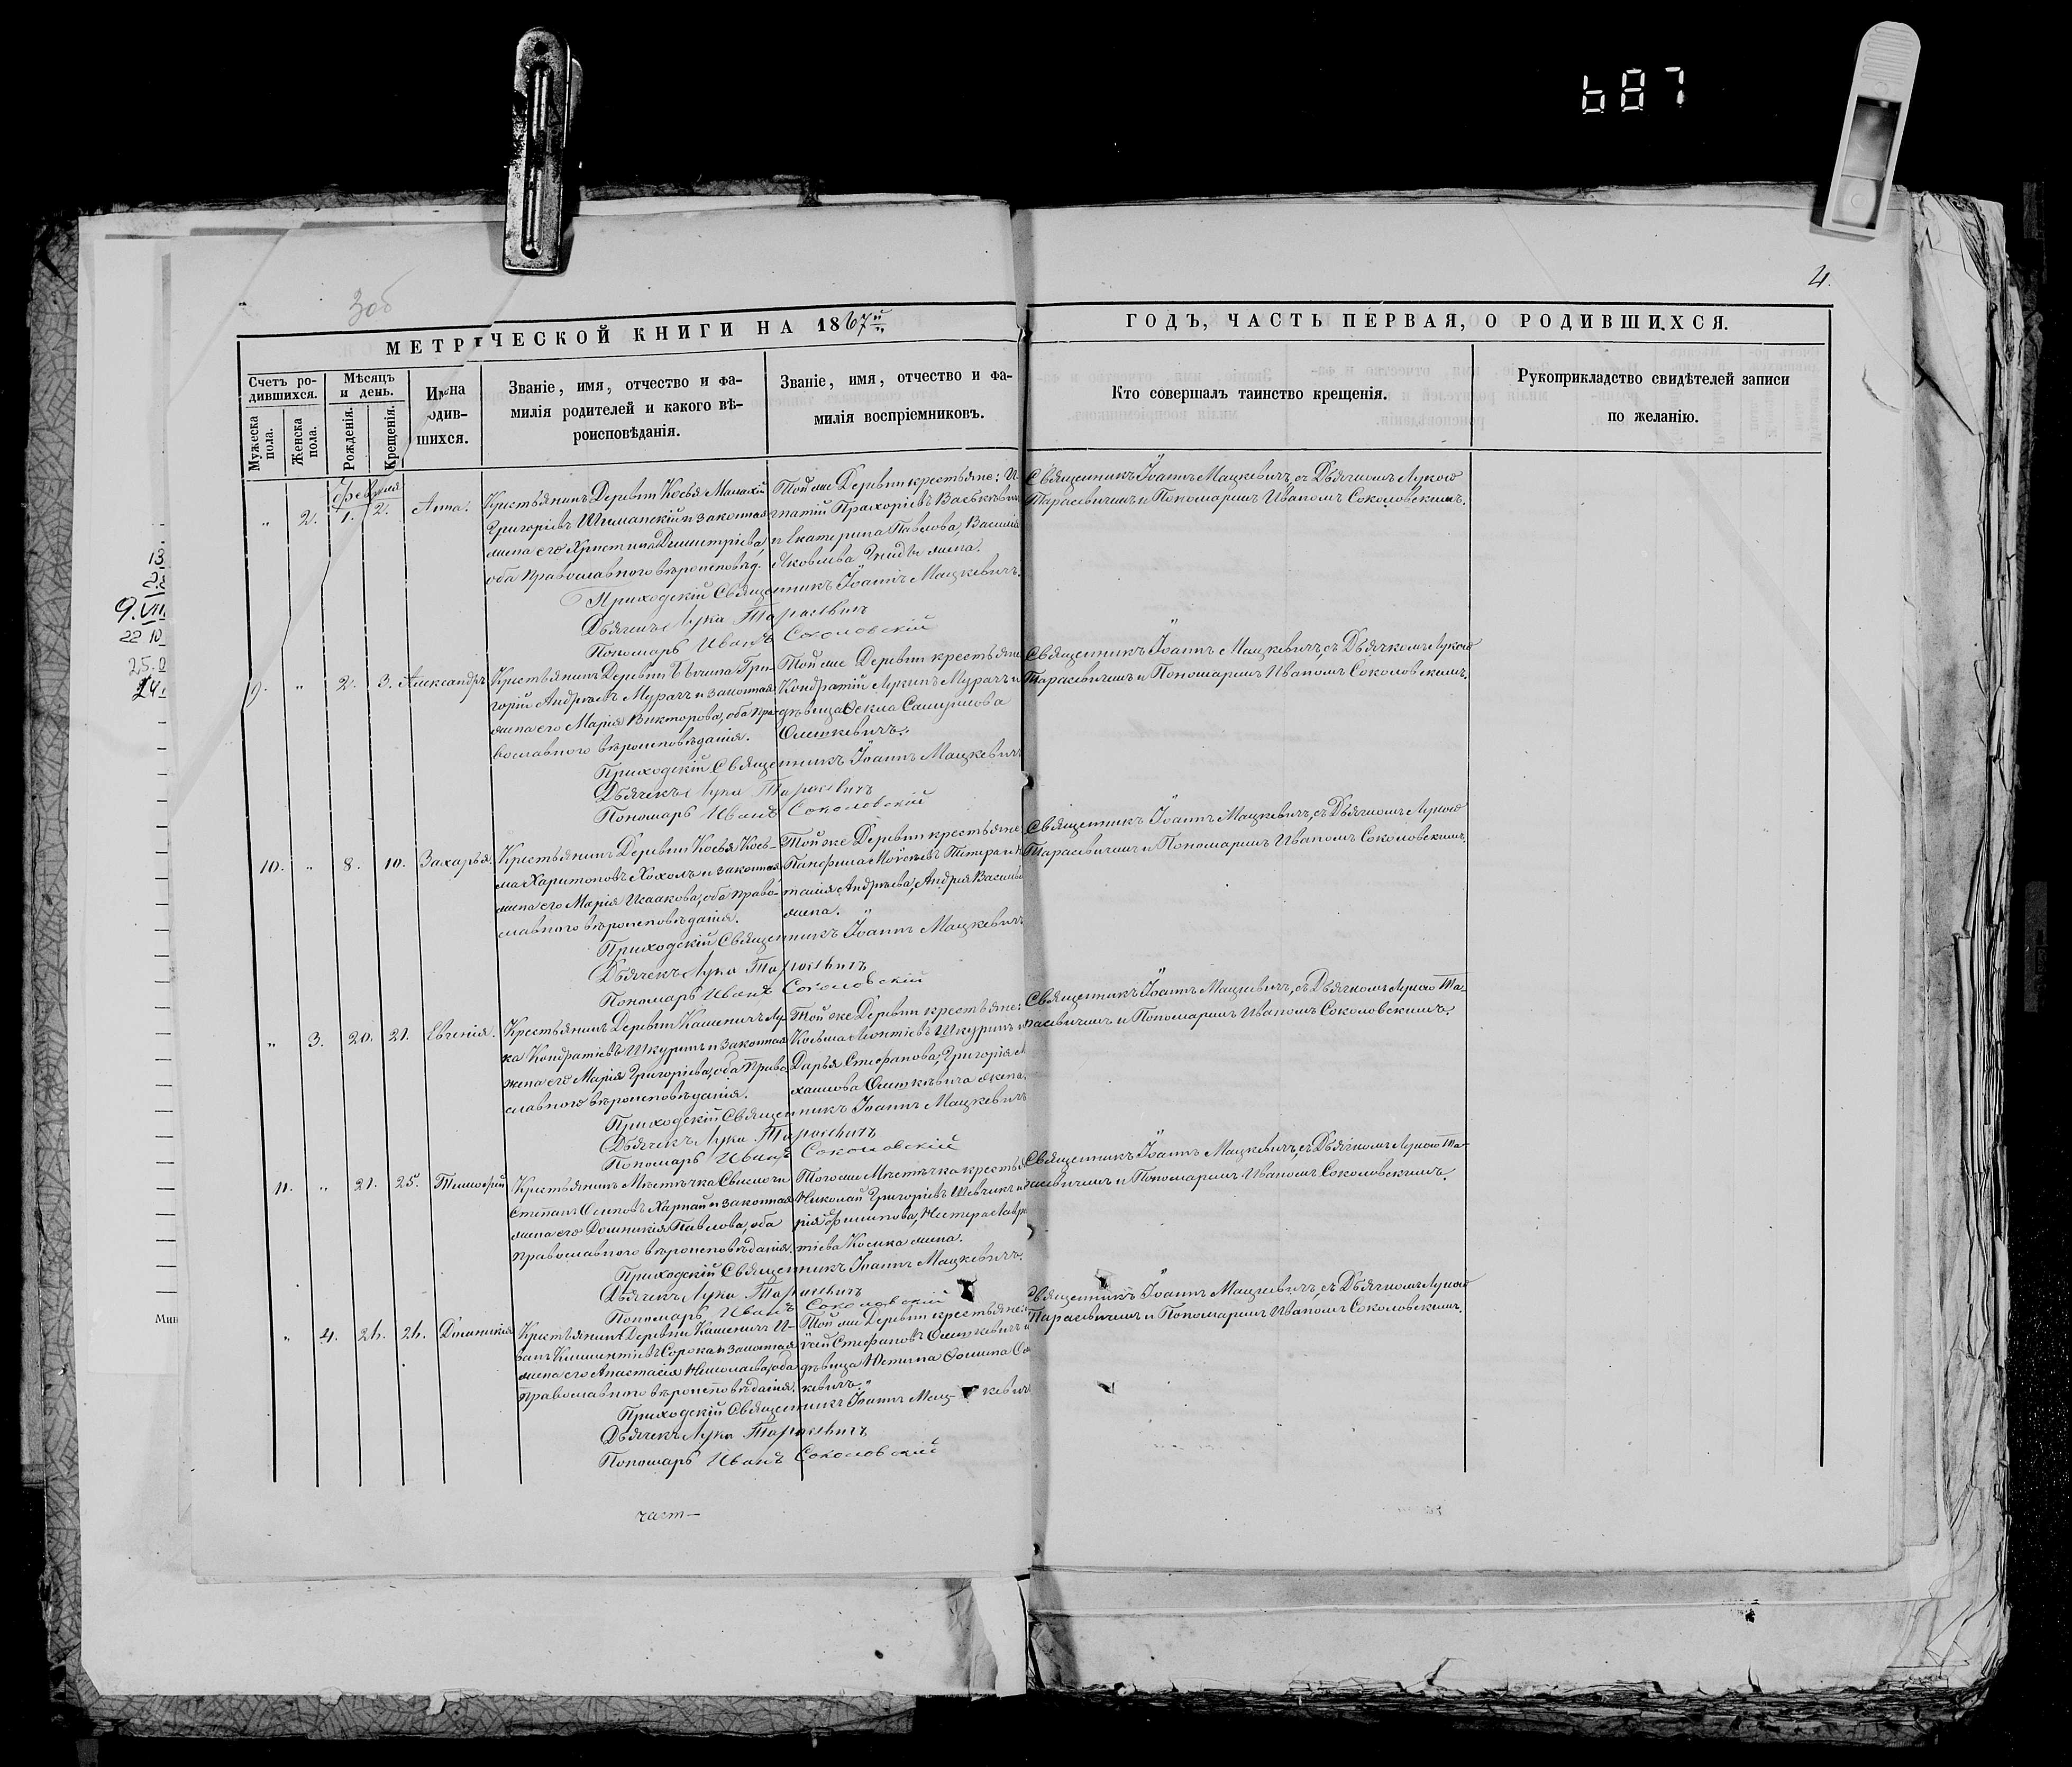 687
4.
306
МЕТРИЧЕСКОЙ КНИГИ НА 1867й
ГОДЪ, ЧАСТЬ ПЕРВАЯ, О РОДИВШИХСЯ.
Счетъ ро-
дившихся.
Мужеска пола.
Женска пола.
Мѣсяцъ
и день.
Рожденія.
Крещенія.
Имена
родив-
шихся.
Званіе, имя, отчество и фа-
милія родителей и какого вѣ-
роисповѣданія.
Званіе, имя, отчество и фа-
милія воспріемниковъ.
Кто совершалъ таинство крещенія.
Рукоприкладство свидѣтелей записи
по желанію.
Февраля
„ 2. 1. 2. Анна.
Крестьянинъ Деревни Косья Малахій
Григорьевъ Шиманскій и законная
жена его Христина Димитріева,
оба православнаго вѣроисповѣд.
Той же Деревни крестьяне: И-
гнатій Прохоріевъ Васькевичъ
и Екатерина Павлова, Василія
Яковлева жена.
Священникъ Іоаннъ Мацкевичъ, съ Дьячкомъ Лукою
Тарасевичемъ и Пономаремъ Иваномъ Соколовскимъ.
Приходскій Священникъ Іоаннъ Мацкевичъ.
Дьячекъ Лука Тарасевичъ
Пономарь Иванъ Соколовскій
9. „ 2. 3. Александръ
Крестьянинъ Деревни Гри-
горій Андреевъ Мурачъ и законная
жена его Марія Викторова, оба пра-
вославнаго вѣроисповѣданія.
Той же Деревни крестьяне
Кондратій Лукинъ Мурачъ и
дѣвица Ѳекла Самуилова
Олишкевичъ.
Священникъ Іоаннъ Мацкевичъ, съ Дьячкомъ Лукою
Тарасевичемъ и Пономаремъ Иваномъ Соколовскимъ.
Приходскій Священникъ Іоаннъ Мацкевичъ
Дьячекъ Лука Тарасевичъ
Пономарь Иванъ Соколовскій
10. „ 8. 10. Захарья.
Крестьянинъ Деревни Косья Козь-
ма Харитоновъ Хохолъ и законная
жена его Марія Исаакова, оба право-
славнаго вѣроисповѣданія.
Той же Деревни крестьяне
Панфилъ Моѵсеевъ
Андреева, Андрея
жена.
Священникъ Іоаннъ Мацкевичъ, съ Дьячкомъ Лукою
Тарасевичемъ и Пономаремъ Иваномъ Соколовскимъ.
Приходскій Священникъ Іоаннъ Мацкевичъ
Дьячекъ Лука Тарасевичъ
Пономарь Иванъ Соколовскій
„ 3. 20. 21. Евгенія.
Крестьянинъ Деревни Кашеничъ Лу-
ка Кондратіевъ Шкуринъ и законная
жена его Марія Григоріева, оба право-
славнаго вѣроисповѣданія.
Той же Деревни крестьяне:
Козьма Леонтіевъ Шкуринъ и
Дарья Стефанова, Григорія М
хаилова Олишкевича жена.
Священникъ Іоаннъ Мацкевичъ, съ Дьячкомъ Лукою Та-
расевичемъ и Пономаремъ Иваномъ Соколовскимъ.
Приходскій Священникъ Іоаннъ Мацкевичъ
Дьячекъ Лука Тарасевичъ
Пономарь Иванъ Соколовскій
11. „ 21. 25. Тимофей
Крестьянинъ Мѣстечка Свислочи
Степанъ Осиповъ Харпай и законная
жена его Домникія Павлова, оба
православнаго вѣроисповѣданія.
Того же Мѣстечка крестья
Николай Григоріевъ Шевчикъ и
рія Филипова, Нестера Лавре
тіева Косика жена.
Священникъ Іоаннъ Мацкевичъ, съ Дьячкомъ Лукою Та-
расевичемъ и Пономаремъ Иваномъ Соколовскимъ.
Приходскій Священникъ Іоаннъ Мацкевичъ.
Дьячекъ Лука Тарасевичъ
Пономарь Иванъ Соколовскій
„ 4. 26. 26. Домникія
Крестьянинъ Деревни Кашеничъ И-
ванъ Климентіевъ Сорока и законная
жена его Анастасія Николаева, оба
православнаго вѣроисповѣданія.
Той же Деревни крестьяне:
Стефановъ Олишкевичъ и
дѣвица Устина Ѳомина Ол
кевичъ.
Священникъ Іоаннъ Мацкевичъ, съ Дьячкомъ Лукою
Тарасевичемъ и Пономаремъ Иваномъ Соколовскимъ.
Приходскій Священникъ Іоаннъ Мацкевичъ
Дьячекъ Лука Тарасевичъ
Пономарь Иванъ Соколовскій
част—